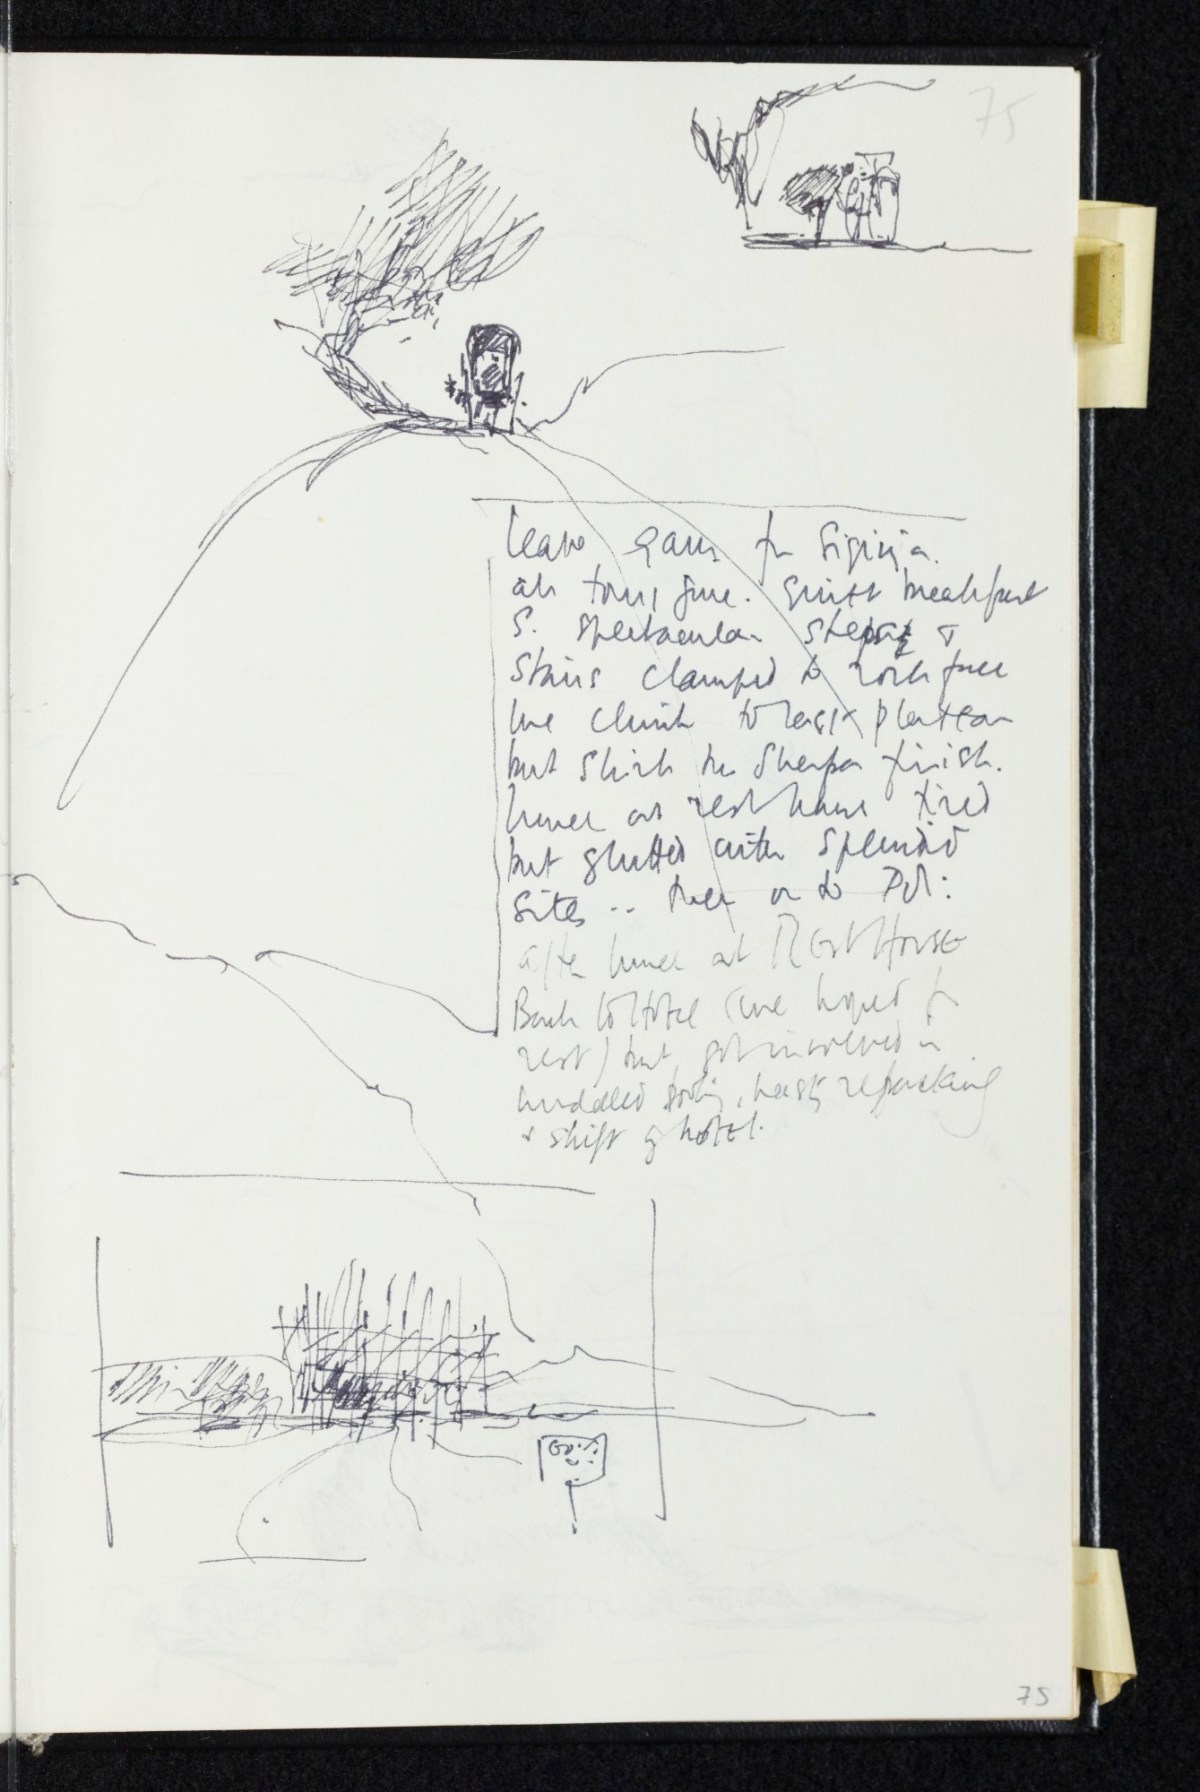 75
Leave 9am for Sigiriya.
all tours fine. Quick breakfast
S. spectacular steps &
Stairs clamped to rock face
we climb to last plateau
but shirk the Sherpa finish.
lunch at rest house tired
but glutted with splendid
sites .. then on to Pol:
after lunch at Rest House
Back to Hotel (we hoped for
rest) but got involved in
muddled, hasty repacking
& shift of hotel.
75